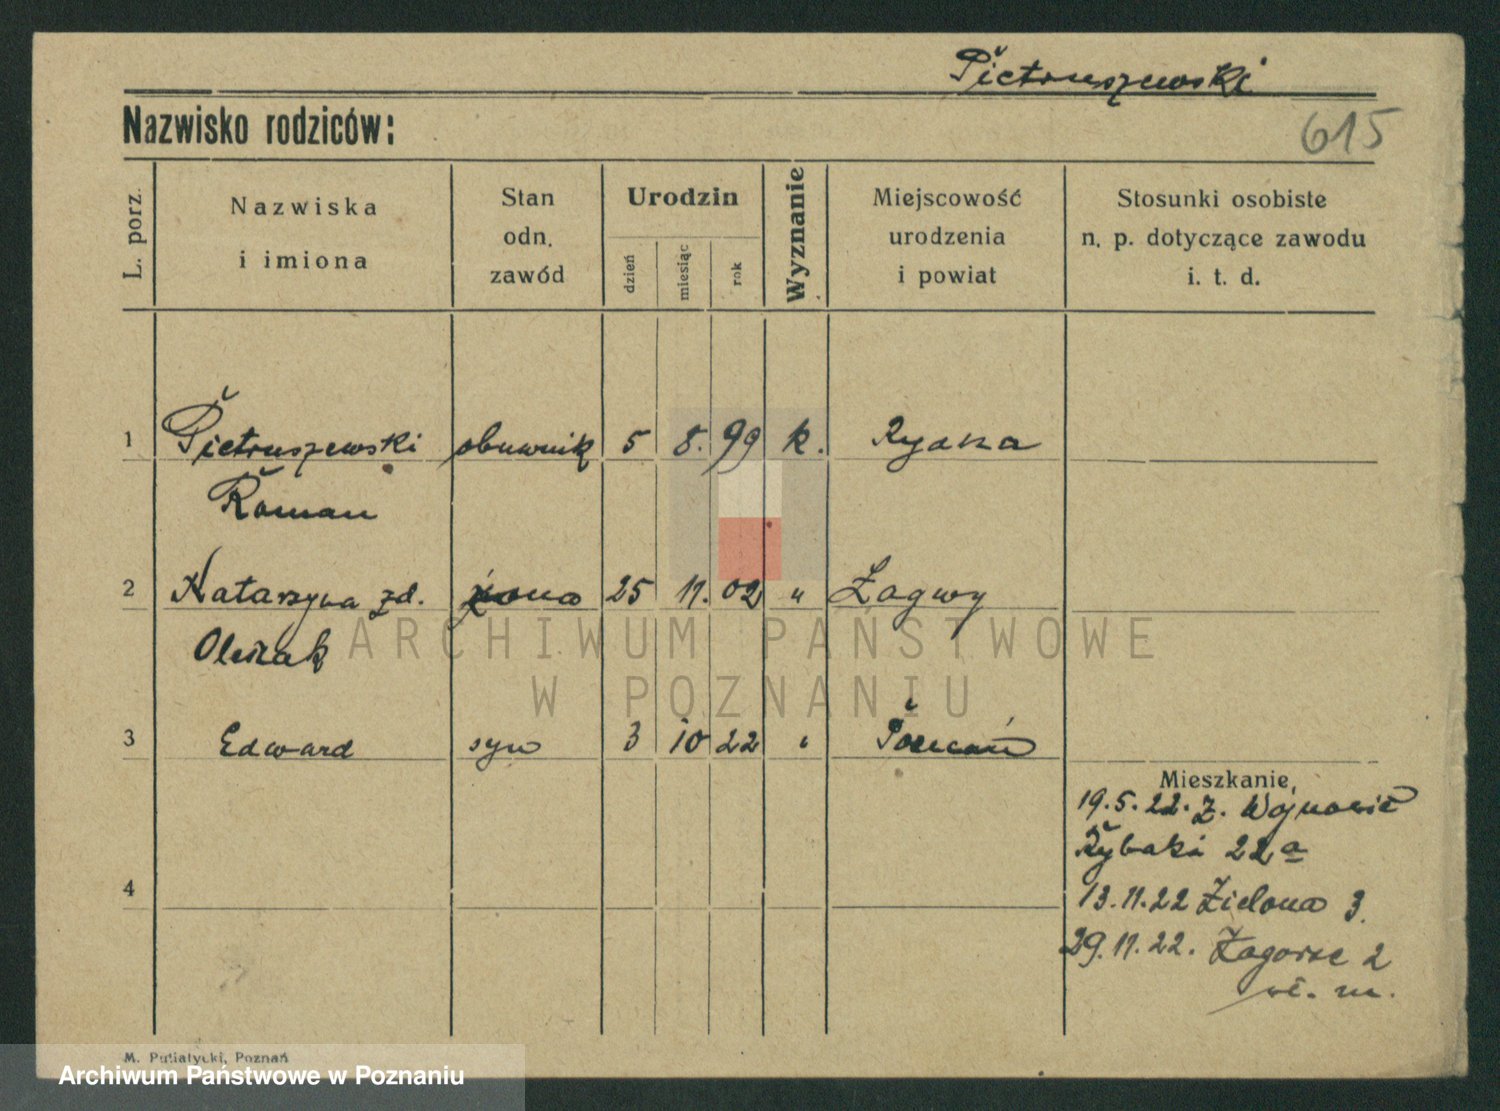 Pietruszewski
Nazwisko rodziców:
615
L. porz.
Nazwiska
i imiona
Stan
odn.
zawód
Urodzin
dzień
miesiąc
rok
Wyznanie
Miejscowość
urodzenia
i powiat
Stosunki osobiste
n. p. dotyczące zawodu
i. t. d.
1 Pietruszewski obuwnik 5 8. 99 k.
Roman
2 Katarzyna zd. żona 25 11. 02 "
Olszak
3 Edward syn 3 10 22 Poznań
4
Mieszkanie,
19.5.22. Z.
Rybaki 22a
13.11.22 Zielona 3.
29.11.22. Zagorze 2
ARCHIWUM PAŃSTWOWE
W POZNANIU
M. Putiatycki, Poznań
Archiwum Państwowe w Poznaniu